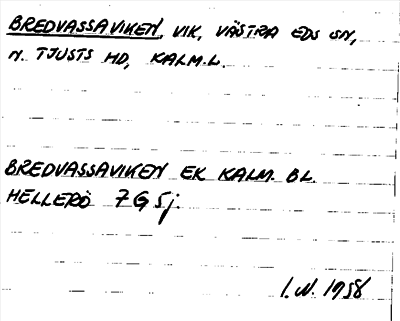 BREDVASSAVIKEN, VIK, VÄSTRA EDS SN,
N. TJUSTS HD, KALM.L.
BREDVASSAVIKEN EK KALM. BL.
HELLERÖ 7G5j.
I.N. 1958